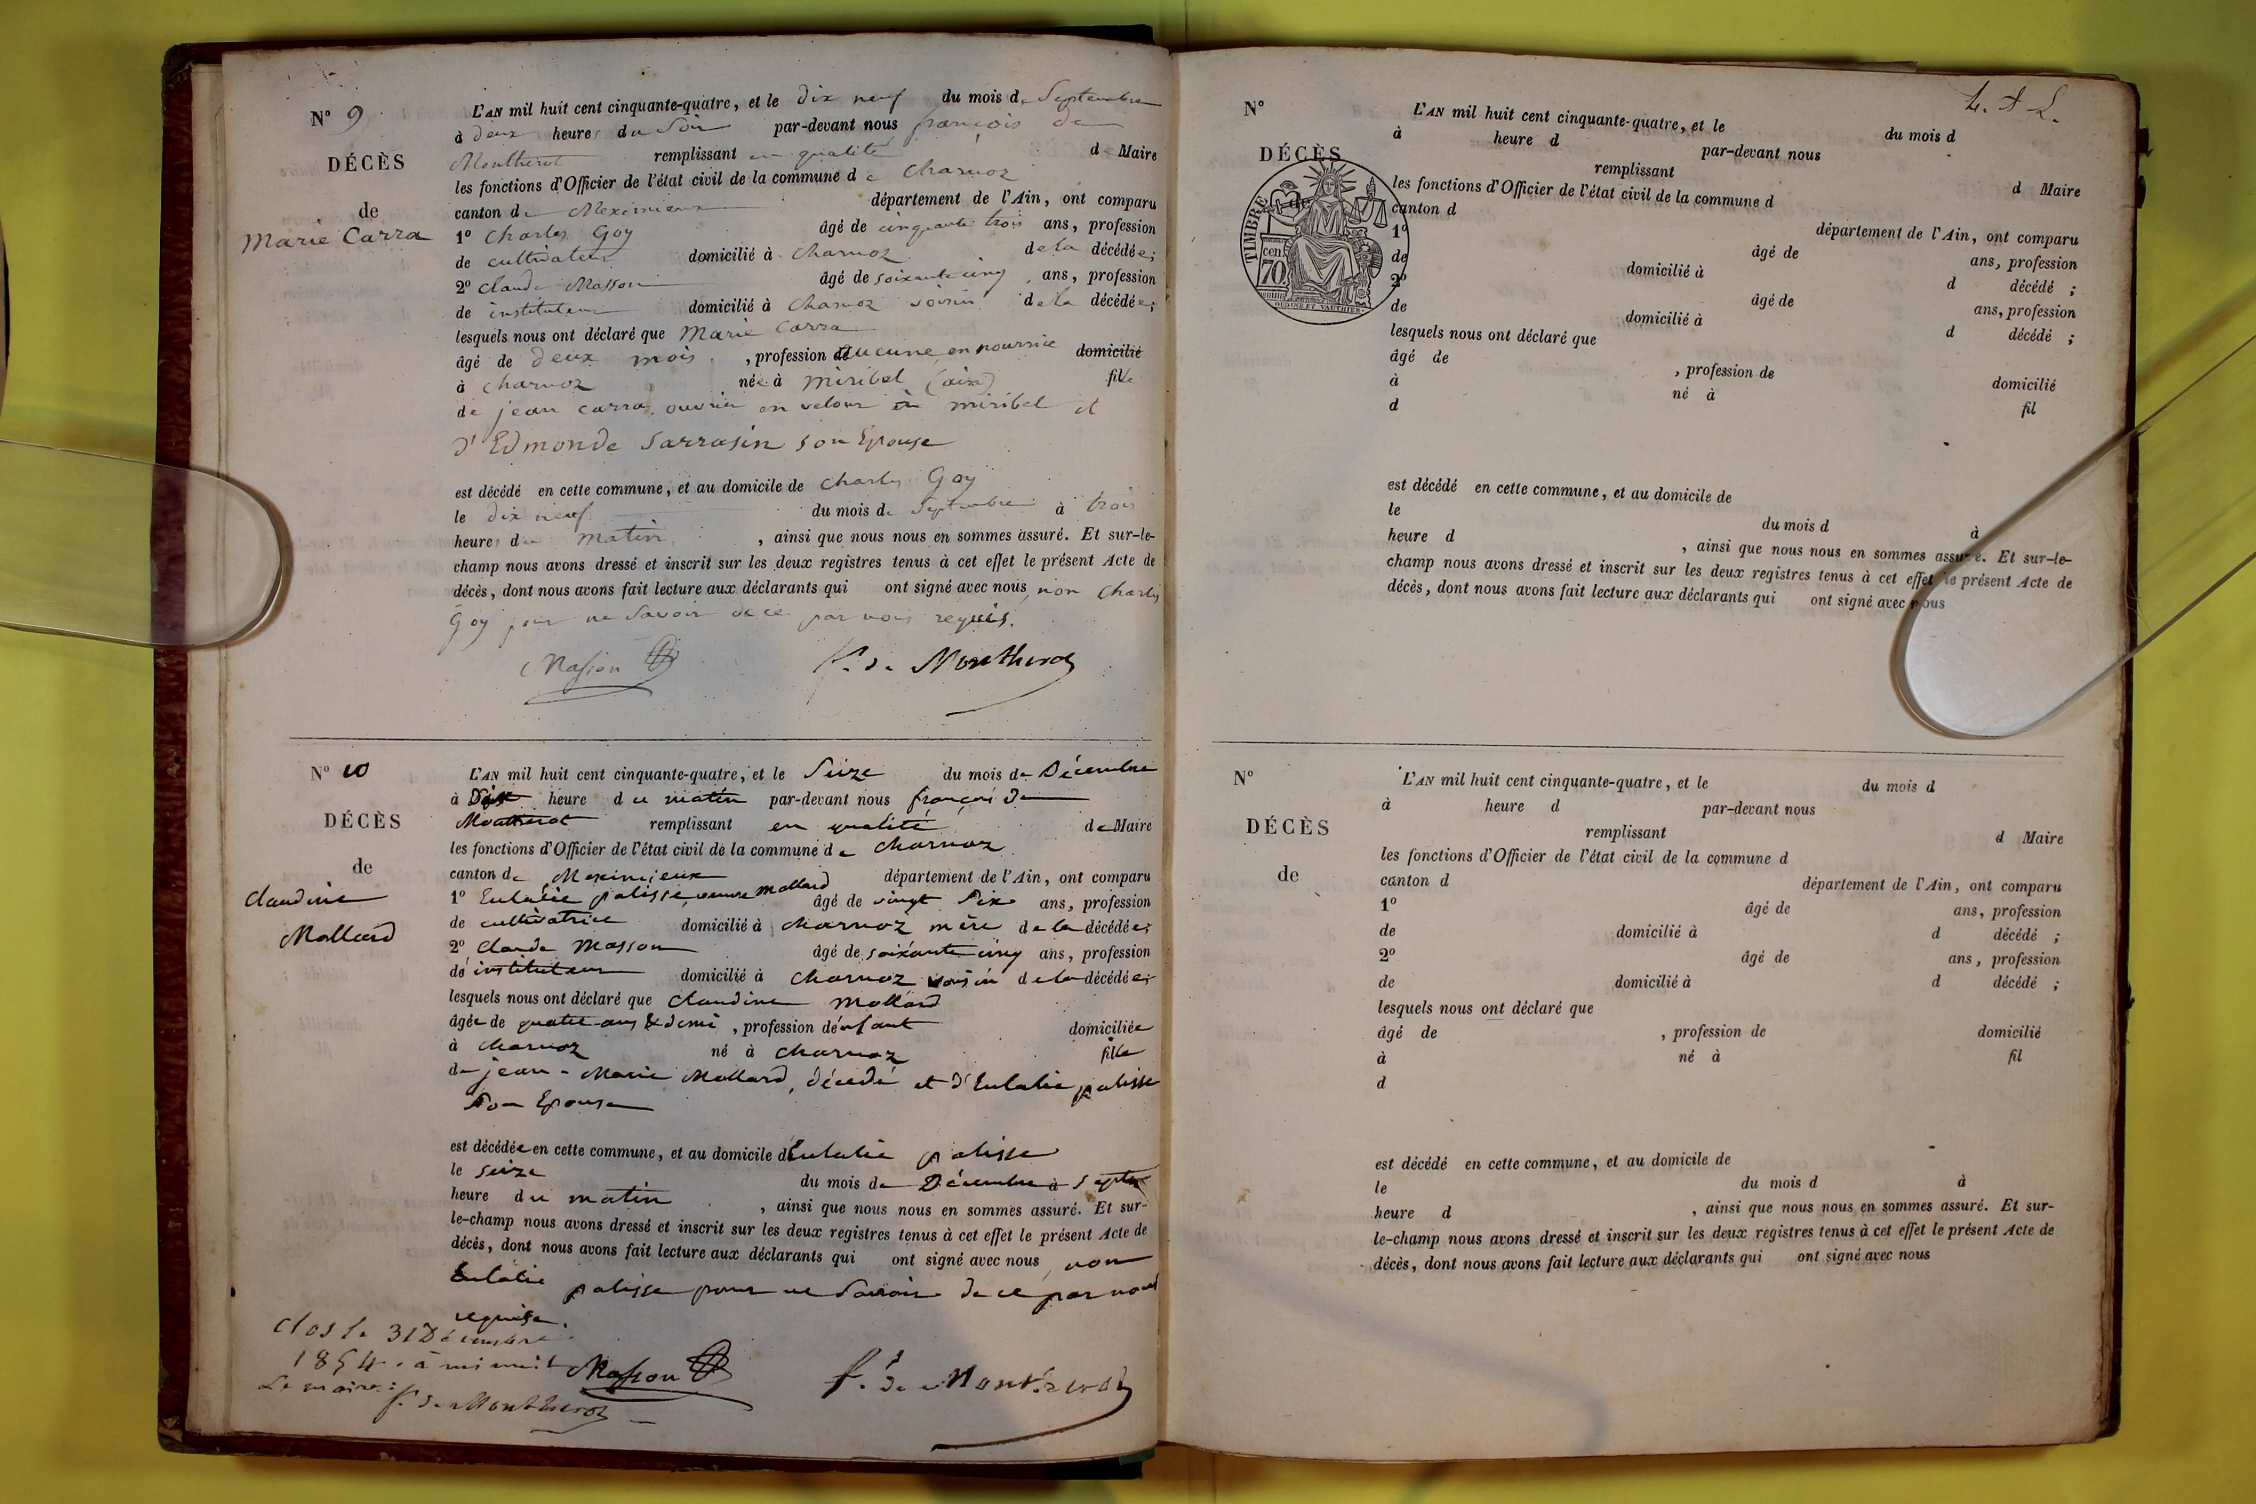 N° 9
DÉCÈS
de
Marie Carra
L'AN mil huit cent cinquante-quatre, et le dix neuf du mois de Septembre
à deux heures du Soir par-devant nous françois de
Montherot remplissant en qualité de Maire
les fonctions d'Officier de l'état civil de la commune de Charnoz
canton de Meximieux département de l'Ain, ont comparu
1° Charles Goy âgé de cinquante trois ans, profession
de cultivateur domicilié à Charnoz de la décédée;
2° Claude Masson âgé de soixante cinq ans, profession
de instituteur domicilié à Charnoz voisin de la décédée;
lesquels nous ont déclaré que Marie Carra
âgé de deux mois, profession aucune en nourrice domicilié
à charnoz née à miribel (ain) fille
de jean carra, ouvrier en velour à miribel et
d'Edmonde Sarrasin son Epouse
est décédé en cette commune, et au domicile de Charles Goy
le dix neuf du mois de Septembre à trois
heures du matin, ainsi que nous nous en sommes assuré. Et sur-le-
champ nous avons dressé et inscrit sur les deux registres tenus à cet effet le présent Acte de
décès, dont nous avons fait lecture aux déclarants qui ont signé avec nous, non Charles
Goy pour ne Savoir de ce par nous requis.
Masson f. de Montherot
N° 10
DÉCÈS
de
Claudine
Mollard
L'AN mil huit cent cinquante-quatre, et le Seize du mois de Décembre
à heure du matin par-devant nous françois de
Montherot remplissant en qualité de Maire
les fonctions d'Officier de l'état civil de la commune de Charnoz
canton de Meximieux département de l'Ain, ont comparu
1° Eulalie palisse veuve Mollard âgé de vingt Six ans, profession
de cultivatrice domicilié à Charnoz mère de la décédée;
2° Claude Masson âgé de soixante cinq ans, profession
de instituteur domicilié à Charnoz voisin de la décédée;
lesquels nous ont déclaré que Claudine Mollard
âgée de quatre ans & demi, profession d'enfant domiciliée
à Charnoz né à Charnoz fille
de jean-Marie Mollard, décédé et d'Eulalie palisse
Son Epouse
est décédée en cette commune, et au domicile d'Eulalie palisse
le seize du mois de Décembre à Sept
heure du matin, ainsi que nous nous en sommes assuré. Et sur-
le-champ nous avons dressé et inscrit sur les deux registres tenus à cet effet le présent Acte de
décès, dont nous avons fait lecture aux déclarants qui ont signé avec nous, non
Eulalie palisse pour ne Savoir de ce par nous
requise.
Clos le 31 Décembre
1854. à minuit
Le maire:
f. de Montherot
Masson f. de Montherot
L. A L.
N°
DÉCÈS
TIMBRE
70 cen.
L'AN mil huit cent cinquante-quatre, et le du mois d
à heure d par-devant nous
remplissant d Maire
les fonctions d'Officier de l'état civil de la commune d
canton d département de l'Ain, ont comparu
1° âgé de ans, profession
de domicilié à d décédé ;
2° âgé de ans, profession
de domicilié à d décédé ;
lesquels nous ont déclaré que
âgé de , profession de domicilié
à né à fil
d
est décédé en cette commune, et au domicile de
le du mois d à
heure d , ainsi que nous nous en sommes assuré. Et sur-le-
champ nous avons dressé et inscrit sur les deux registres tenus à cet effet le présent Acte de
décès, dont nous avons fait lecture aux déclarants qui ont signé avec nous
N°
DÉCÈS
de
L'AN mil huit cent cinquante-quatre, et le du mois d
à heure d par-devant nous
remplissant d Maire
les fonctions d'Officier de l'état civil de la commune d
canton d département de l'Ain, ont comparu
1° âgé de ans, profession
de domicilié à d décédé ;
2° âgé de ans, profession
de domicilié à d décédé ;
lesquels nous ont déclaré que
âgé de , profession de domicilié
à né à fil
d
est décédé en cette commune, et au domicile de
le du mois d à
heure d , ainsi que nous nous en sommes assuré. Et sur-
le-champ nous avons dressé et inscrit sur les deux registres tenus à cet effet le présent Acte de
décès, dont nous avons fait lecture aux déclarants qui ont signé avec nous